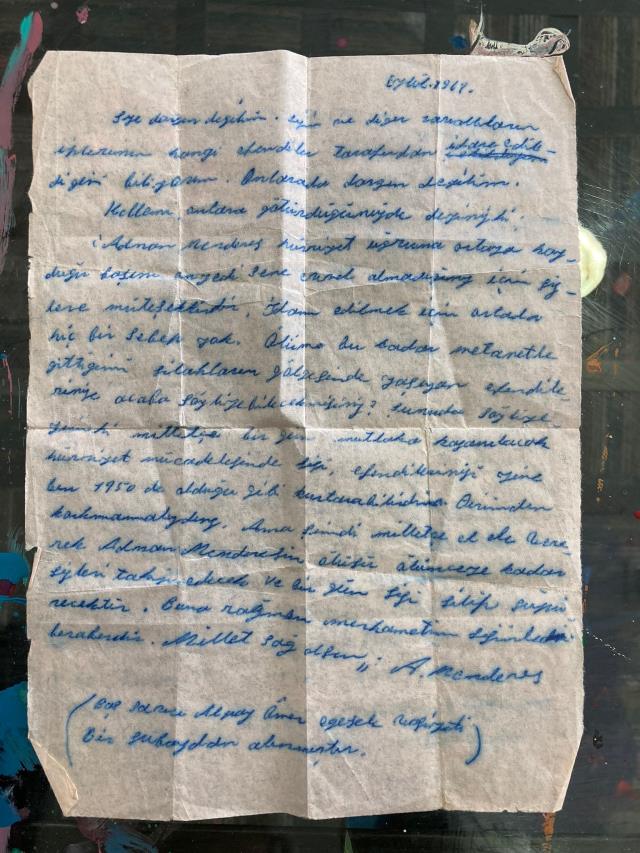 Eylül.1961.
Size dargın değilim. Sizin ve diğer zavallıların
iplerinin hangi efendiler tarafından idare edil-
diğini biliyorum. Onlarada dargın değilim.
Kellemi onlara götürdüğünüzde deyiniz ki:
Adnan Menderes hürriyet uğruna ortaya koy-
duğu başını onyedi sene evvel almadığınız için siz-
lere müteşekkirdir. İdam edilmek için ortada
hiç bir sebep yok. Ölüme bu kadar metanetle
gittiğimi silahların gölgesinde yaşayan efendile-
rinize acaba söyliyebilecekmisiniz? Şunuda söyliye-
yimki milletçe bir gün mutlaka kazanılacak
hürriyet mücadelesinde sizi, efendilerinizi yine
ben 1950 de olduğu gibi kurtarabilirdim. Dirimden
korkmamalıydınız. Ama şimdi milletçe el ele vere-
rek Adnan Menderesin ölüsü ölünceye kadar
sizleri takip edecek ve bir gün sizi silip süpü-
recektir. Buna rağmen merhametim sizinle
beraberdir. Millet sağ olsun,, A. Menderes
(Baş savcı Altay Ömer Egesel
Bir subaydan alınmıştır.)